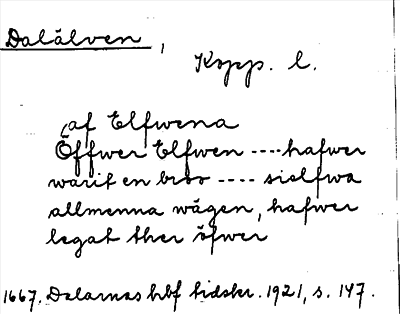 Dalälven,
Kopp. l.
(af Elfwena
Öffwer Elfwen ---- hafwer
warit en broo ---- sielfwa
allmenna wägen, hafwer
legat ther öfwer
1667. Dalarnas hbf tidskr. 1921, s. 147.